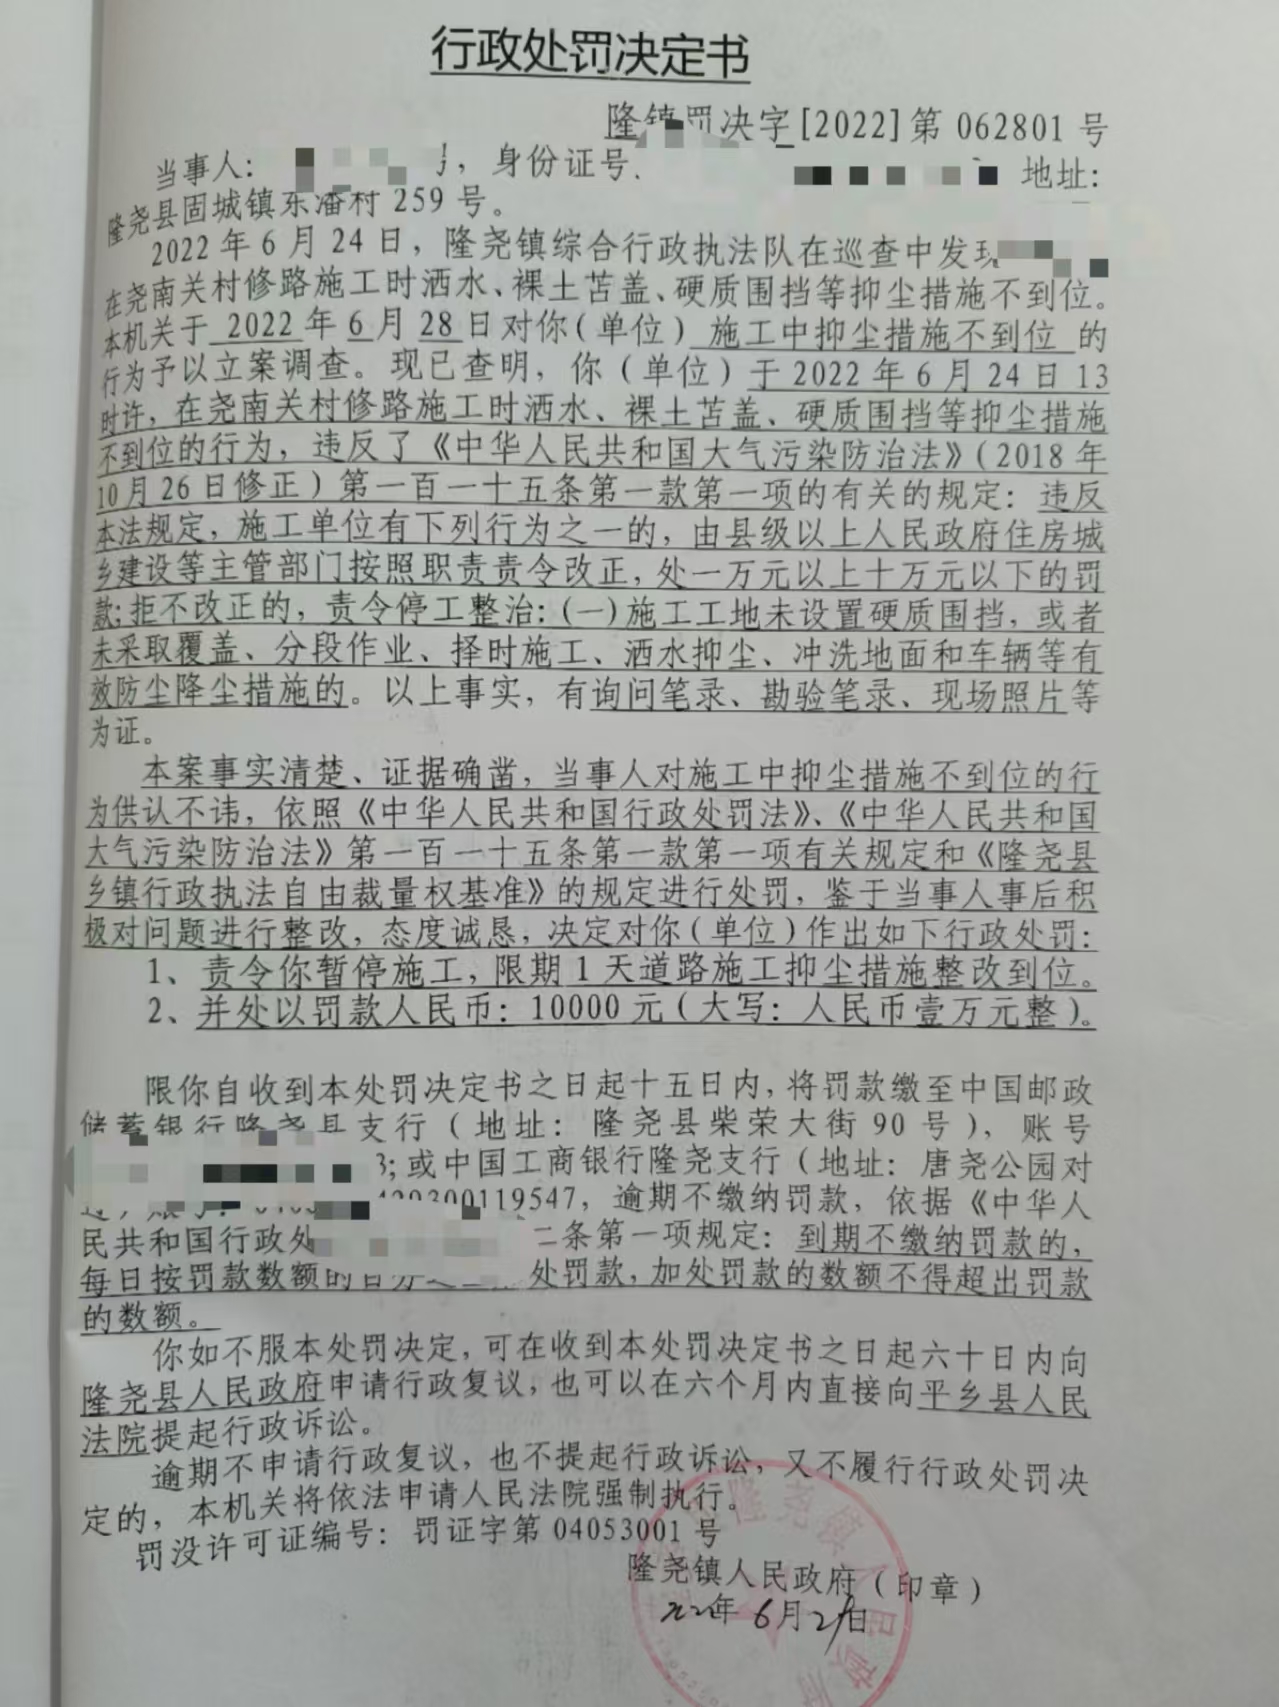 行政处罚决定书
隆镇罚决字[2022]第 062801 号
当事人: ，身份证号 地址：
隆尧县固城镇东潘村 259 号。
2022 年 6 月 24 日，隆尧镇综合行政执法队在巡查中发现
在尧南关村修路施工时洒水、裸土苫盖、硬质围挡等抑尘措施不到位。
本机关于 2022 年 6 月 28 日对你（单位）施工中抑尘措施不到位 的
行为予以立案调查。现已查明，你（单位）于 2022 年 6 月 24 日 13
时许，在尧南关村修路施工时洒水、裸土苫盖、硬质围挡等抑尘措施
不到位的行为，违反了《中华人民共和国大气污染防治法》（2018 年
10 月 26 日修正）第一百一十五条第一款第一项的有关的规定：违反
本法规定，施工单位有下列行为之一的，由县级以上人民政府住房城
乡建设等主管部门按照职责责令改正，处一万元以上十万元以下的罚
款；拒不改正的，责令停工整治：（一）施工工地未设置硬质围挡，或者
未采取覆盖、分段作业、择时施工、洒水抑尘、冲洗地面和车辆等有
效防尘降尘措施的。以上事实，有询问笔录、勘验笔录、现场照片等
为证。
本案事实清楚、证据确凿，当事人对施工中抑尘措施不到位的行
为供认不讳，依照《中华人民共和国行政处罚法》、《中华人民共和国
大气污染防治法》第一百一十五条第一款第一项有关规定和《隆尧县
乡镇行政执法自由裁量权基准》的规定进行处罚，鉴于当事人事后积
极对问题进行整改，态度诚恳，决定对你（单位）作出如下行政处罚：
1、责令你暂停施工，限期 1 天道路施工抑尘措施整改到位。
2、并处以罚款人民币：10000 元（大写：人民币壹万元整）。
限你自收到本处罚决定书之日起十五日内，将罚款缴至中国邮政
储蓄银行隆尧县支行（地址：隆尧县柴荣大街 90 号），账号
3；或中国工商银行隆尧支行（地址：唐尧公园对
420300119547，逾期不缴纳罚款，依据《中华人
民共和国行政处 二条第一项规定：到期不缴纳罚款的，
每日按罚款数额的百分之 处罚款，加处罚款的数额不得超出罚款
的数额。
你如不服本处罚决定，可在收到本处罚决定书之日起六十日内向
隆尧县人民政府申请行政复议，也可以在六个月内直接向平乡县人民
法院提起行政诉讼。
逾期不申请行政复议，也不提起行政诉讼，又不履行行政处罚决
定的，本机关将依法申请人民法院强制执行。
罚没许可证编号：罚证字第 04053001 号
隆尧镇人民政府（印章）
2022年 6月 29日